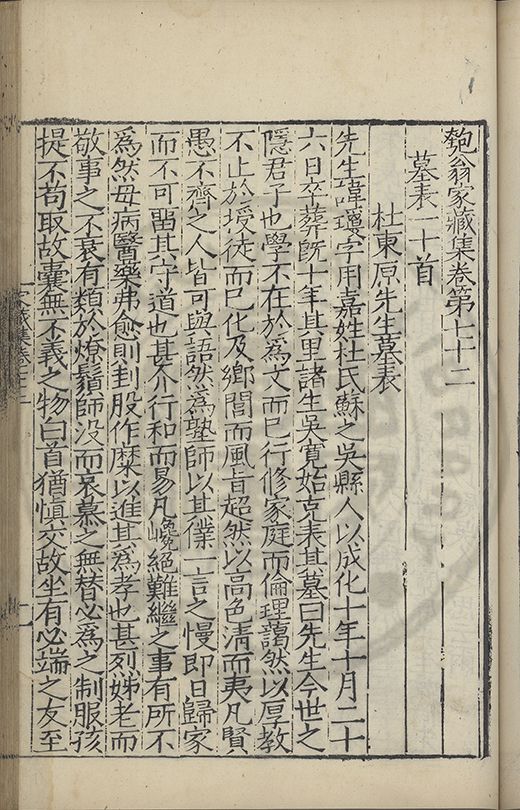 匏翁家藏集卷第七十二
墓表二十首
杜東原先生墓表
先生諱瓊字用嘉姓杜氏蘇之吳縣人以成化十年十月二十
六日卒葬旣十年其里諸生吳寬始克表其墓曰先生今世之
隱君子也學不在於爲文而已行修家庭而倫理藹然以厚教
不止於授徒而已化及鄉閭而風㫖超然以高色清而夷凡賢
愚不齊之人皆可與語然爲塾師以其僕一言之慢即日歸家
而不可畱其守道也甚介行和而易凡巉絕難繼之事有所不
爲然母病醫藥弗愈則刲股作糜以進其爲孝也甚烈姊老而
敬事之不衰有類於燎鬚師没而哀慕之無替必爲之制服孩
提不苟取故囊無不義之物白首猶愼交故坐有必端之友至